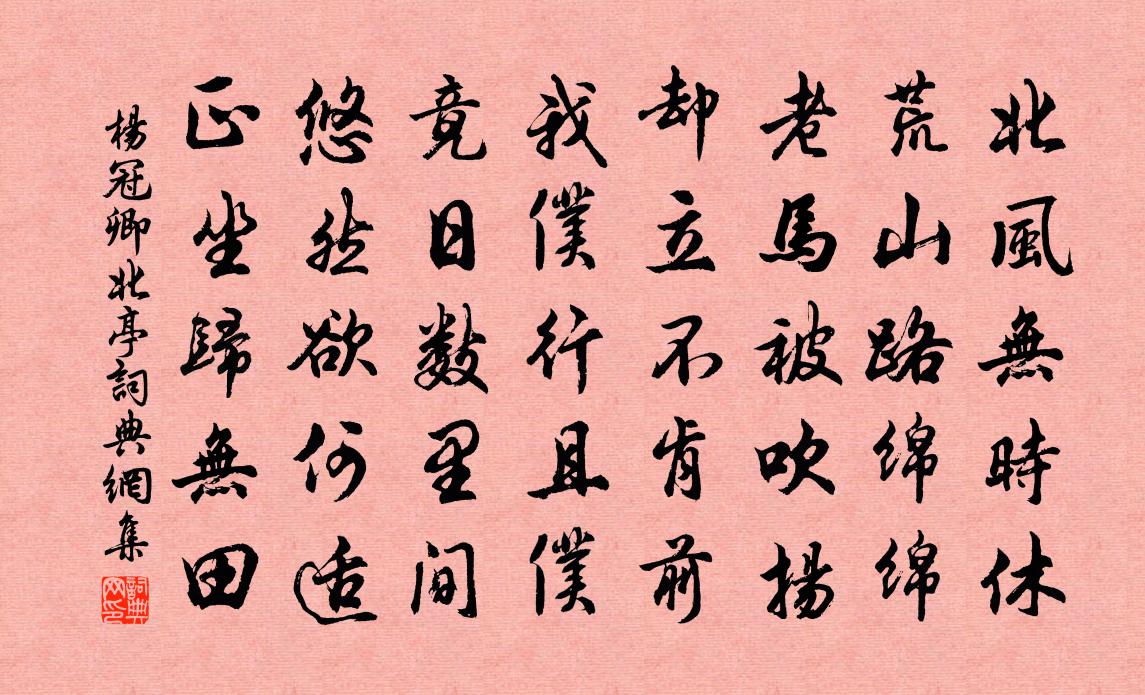 北風無時休
荒山路綿綿
老馬被吹揚
却立不肯前
我僕行且僕
竟日數里間
悠然欲何适
正坐歸無田
楊冠卿北亭詞典網集
詞典网印